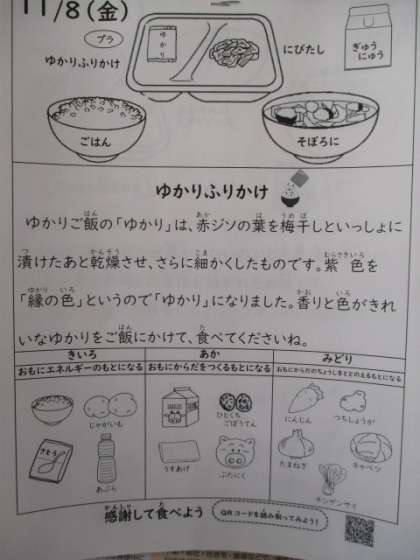 11/8(金)
プラ
ゆかりふりかけ
ゆかり
にびたし
ぎゅうにゅう
ごはん
そぼろに
ゆかりふりかけ
ゆかりご飯の「ゆかり」は、赤ジソの葉を梅干しといっしょに
漬けたあと乾燥させ、さらに細かくしたものです。紫色を
「縁の色」というので「ゆかり」になりました。香りと色がきれ
いなゆかりをご飯にかけて、食べてくださいね。
きいろ
おもにエネルギーのもとになる
あか
おもにからだをつくるもとになる
みどり
おもにからだのちょうしをととのえるもとになる
じゃがいも
さとう
あぶら
ひとくち
ごぼうてん
うすあげ
ぶたにく
にんじん
つちしょうが
たまねぎ
キャベツ
チンゲンサイ
感謝して食べよう
QRコードを読み取ってみよう!